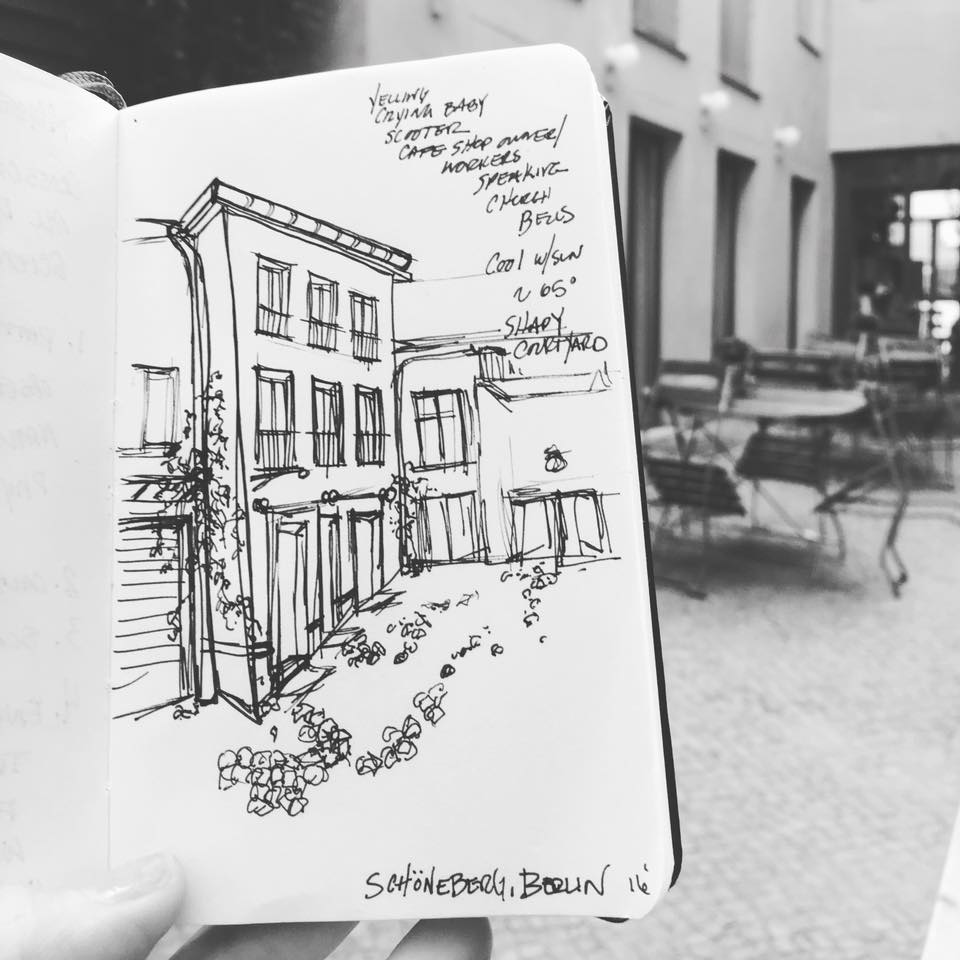 YELLING
CRYING BABY
SCOOTER
CAFE SHOP OWNER/
WORKERS
SPEAKING
CHURCH
BELLS
COOL W/SUN
~ 65°
SHADY
COURTYARD
SCHÖNEBERG, BERLIN 16'